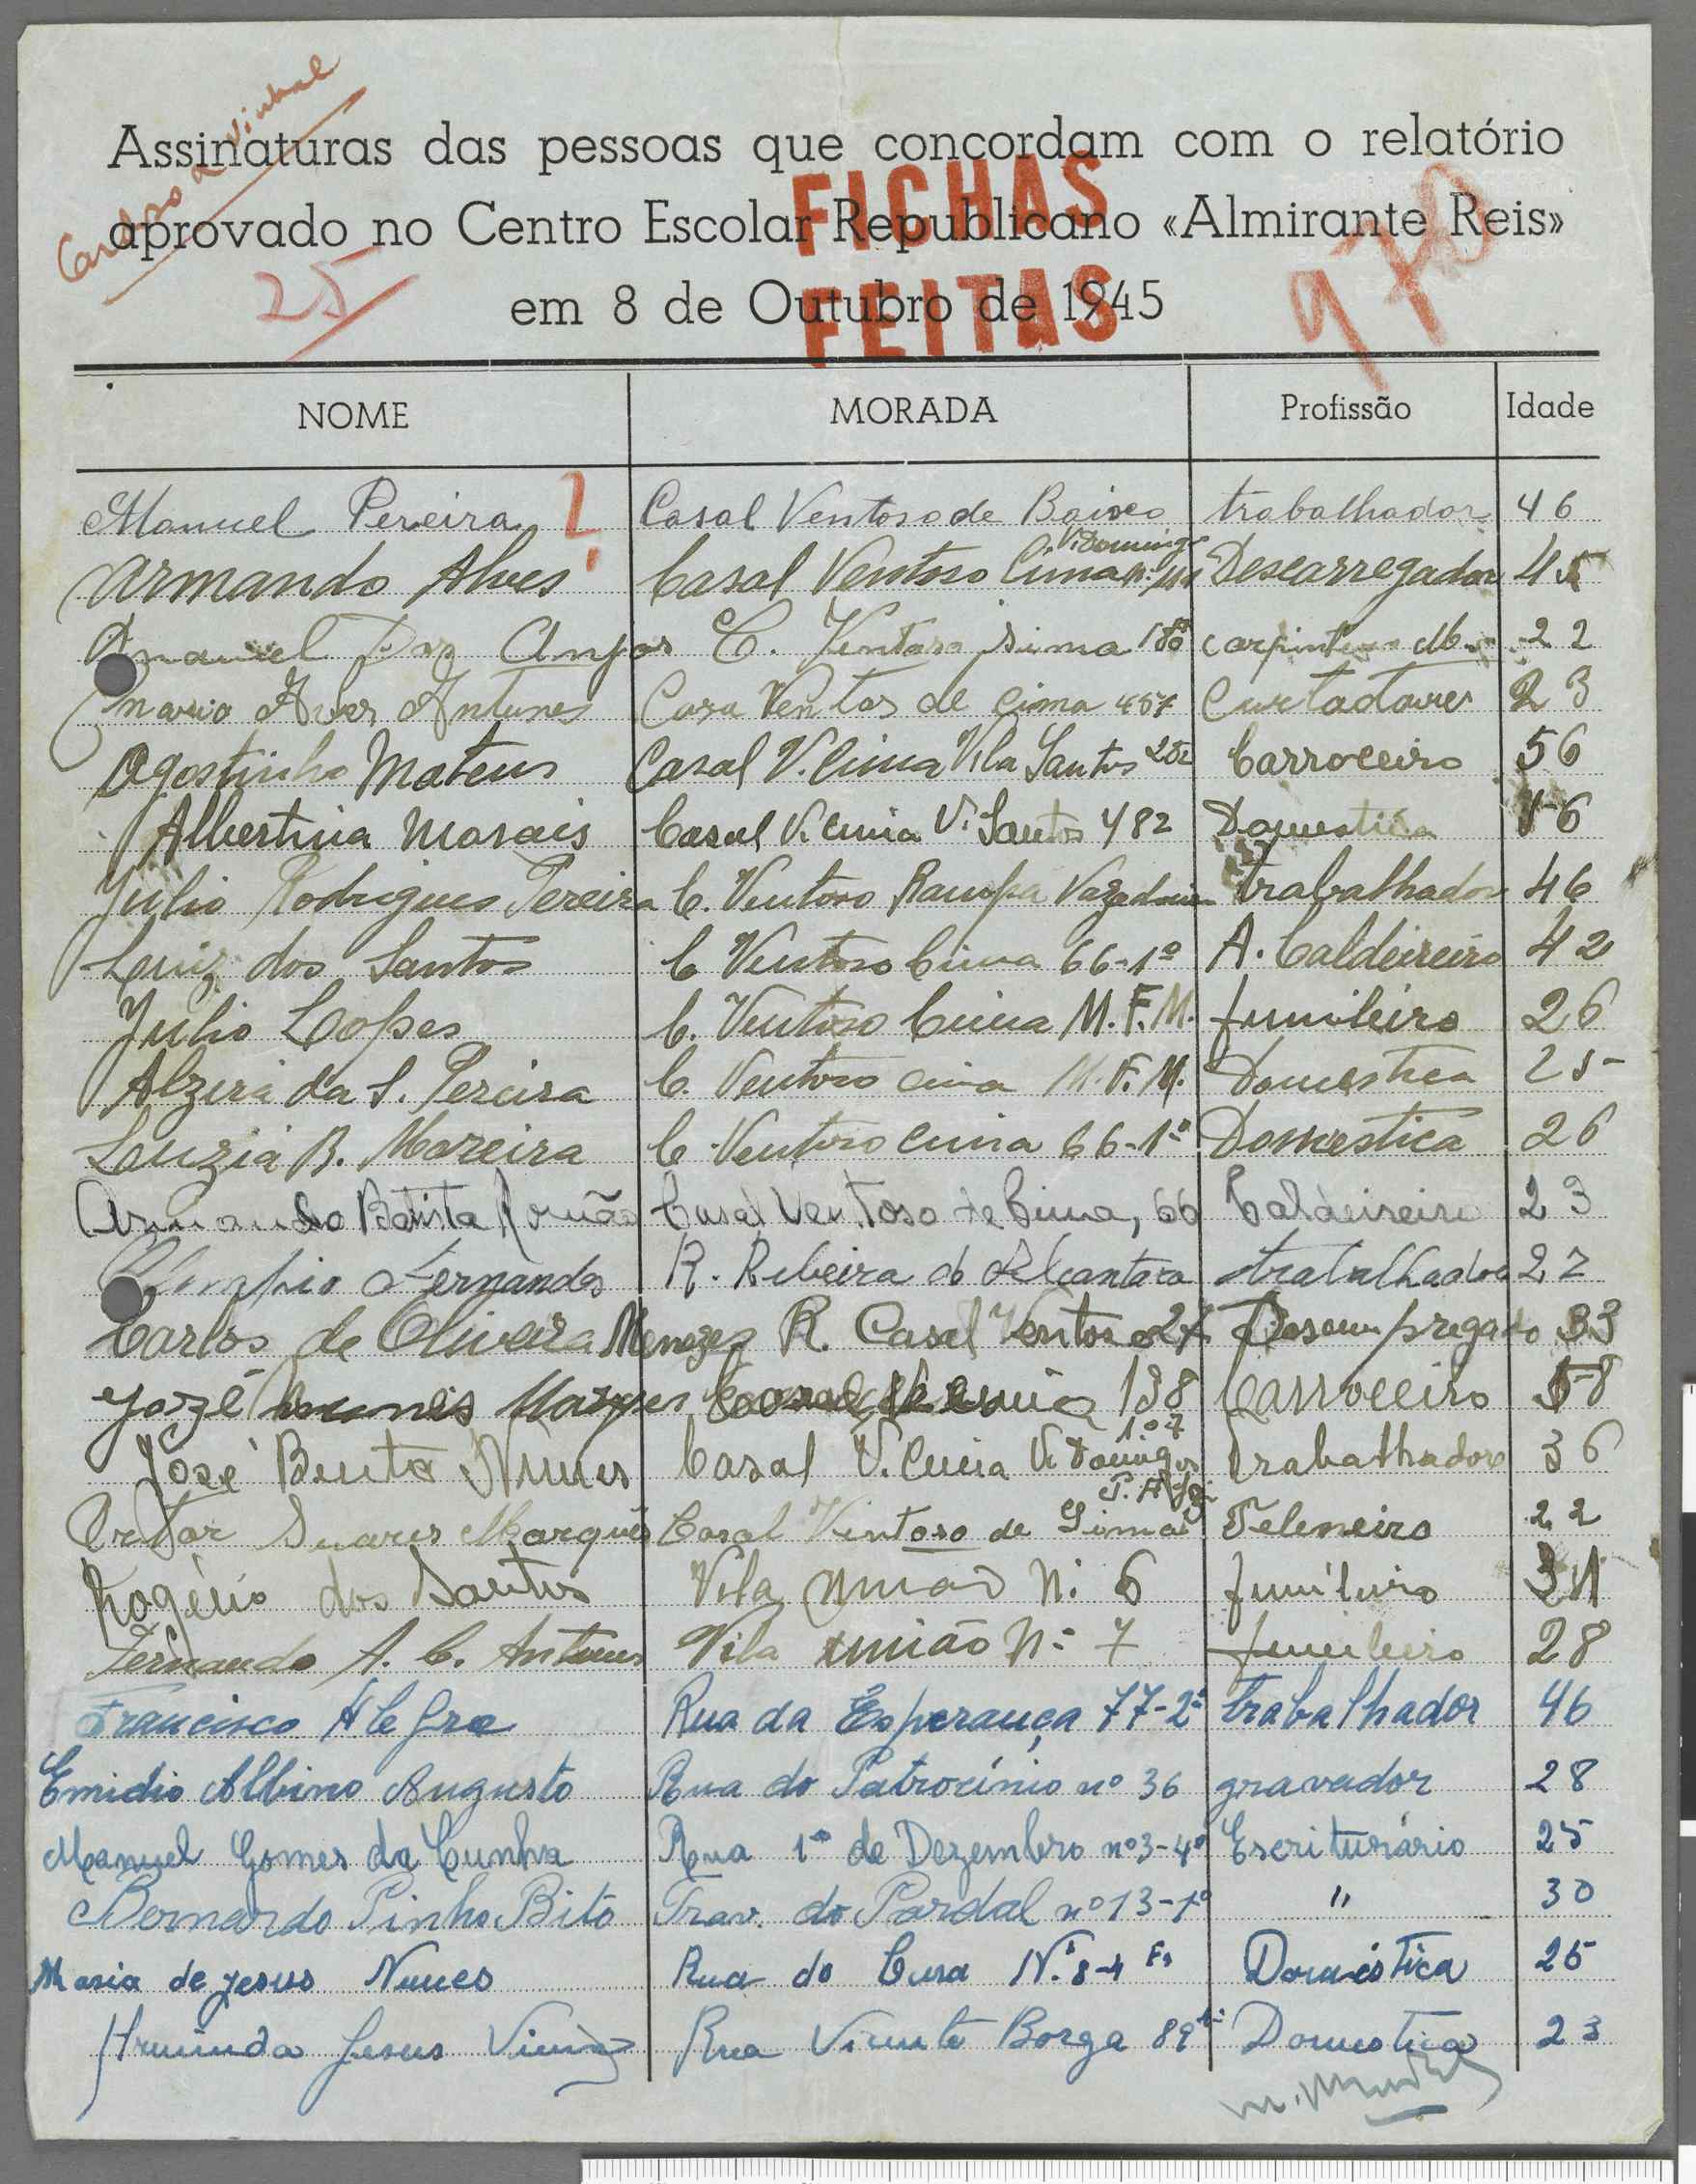 Assinaturas das pessoas que concordam com o relatório
aprovado no Centro Escolar Republicano «Almirante Reis»
em 8 de Outubro de 1945
FICHAS
FEITAS
25
970
NOME MORADA Profissão Idade
Manuel Pereira Casal Ventoso de Baixo trabalhador 46
Armando Alves Casal Ventoso Cima Descarregador 45
Manuel Anjos C. Ventoso sima 180 carpinteiro M. 22
Mario Alves Antunes Casa Ventos de cima 457 Curtadores 23
Agostinho Mateus Casal V. Cima Vila Santos 282 Carroceiro 56
Albertina Morais Casal V. Cima V. Santos 482 Domestica 56
Júlio Rodrigues Pereira C. Ventoso Rampa trabalhador 46
Luiz dos Santos C Ventoso Cima 66-1º A. Caldeireiro 42
Julio Lopes C. Ventoso Cima M.F.M. funileiro 26
Alzira da S. Pereira C. Ventoso cima M.F.M. Domestica 25
Louzia R. Moreira C Ventoso Cima 66-1º Domestica 26
Armando Batista Romão Casal Ventoso de Cima, 66 Caldeireiro 23
Olimpio Fernandes R. Ribeira d Alcantara trabalhador 27
Carlos de Oliveira Menezes R. Casal Ventoso 27 Desempregado 33
Jozé Nunes Casal 138 Carroceiro 58
José Bento Nunes Casal V. Cima V. Domingos trabalhador 36
Soares Marques Casal Ventoso de Sima 22
Rogério dos Santos Vila União N: 6 funileiro 31
Fernando A. C. Antunes Vila união Nº 7 funileiro 28
Francisco Alegre Rua da Esperança 77-2º trabalhador 46
Emidio Albino Augusto Rua do Patrocínio nº 36 gravador 28
Manuel Gomes da Cunha Rua 1º de Dezembro nº3-4º Escriturário 25
Bernardo Pinho Bito Trav. do Pardal nº 13-1º " 30
Maria de Jesus Nunes Rua do Cura Nº 8-4 Domestica 25
Arminda Jesus Vieira Rua Vicente Borga 89 Domestica 23